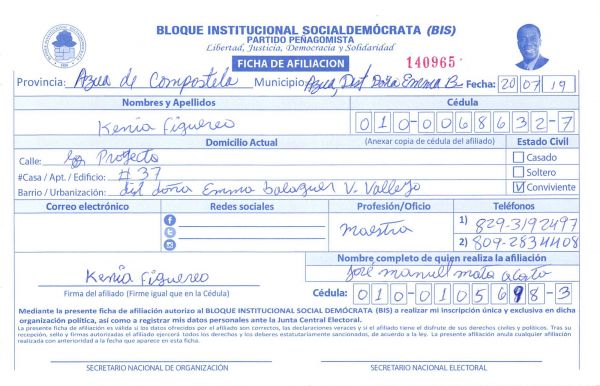 BLOQUE INSTITUCIONAL SOCIALDEMÓCRATA (BIS)
PARTIDO PEÑAGOMISTA
Libertad, Justicia, Democracia y Solidaridad
FICHA DE AFILIACION 140965
Provincia: Azua de Compostela Municipio: Azua, Dist Doña Emma B. Fecha: 20 07 19
Nombres y Apellidos Cédula
Kenia Figuereo 010-0068632-7
Domicilio Actual (Anexar copia de cédula del afiliado) Estado Civil
Calle: Proyecto Casado
#Casa / Apt. / Edificio: # 37 Soltero
Barrio / Urbanización: dist doña Emma balaguer V. Vallejo Conviviente
Correo electrónico Redes sociales Profesión/Oficio Teléfonos
Maestra 1) 829-3192497
2) 809-2834408
Nombre completo de quien realiza la afiliación
Kenia Figuereo José manuel mata
Firma del afiliado (Firme igual que en la Cédula) Cédula: 010-0105698-3
Mediante la presente ficha de afiliación autorizo al BLOQUE INSTITUCIONAL SOCIAL DEMÓCRATA (BIS) a realizar mi inscripción única y exclusiva en dicha
organización política, así como a registrar mis datos personales ante la Junta Central Electoral.
La presente ficha de afiliación es válida si los datos ofrecidos por el afiliado son correctos, las declaraciones veraces y si el afiliado tiene el disfrute de sus derechos civiles y políticos. Tras su
recepción, sello y firmas autorizadas el afiliado ejercerá todos los derechos y los deberes estatutariamente sancionados, de acuerdo a la ley. La presente afiliación anula cualquier afiliación
realizada con anterioridad a la fecha que aparece en esta ficha.
SECRETARIO NACIONAL DE ORGANIZACIÓN SECRETARIO NACIONAL ELECTORAL